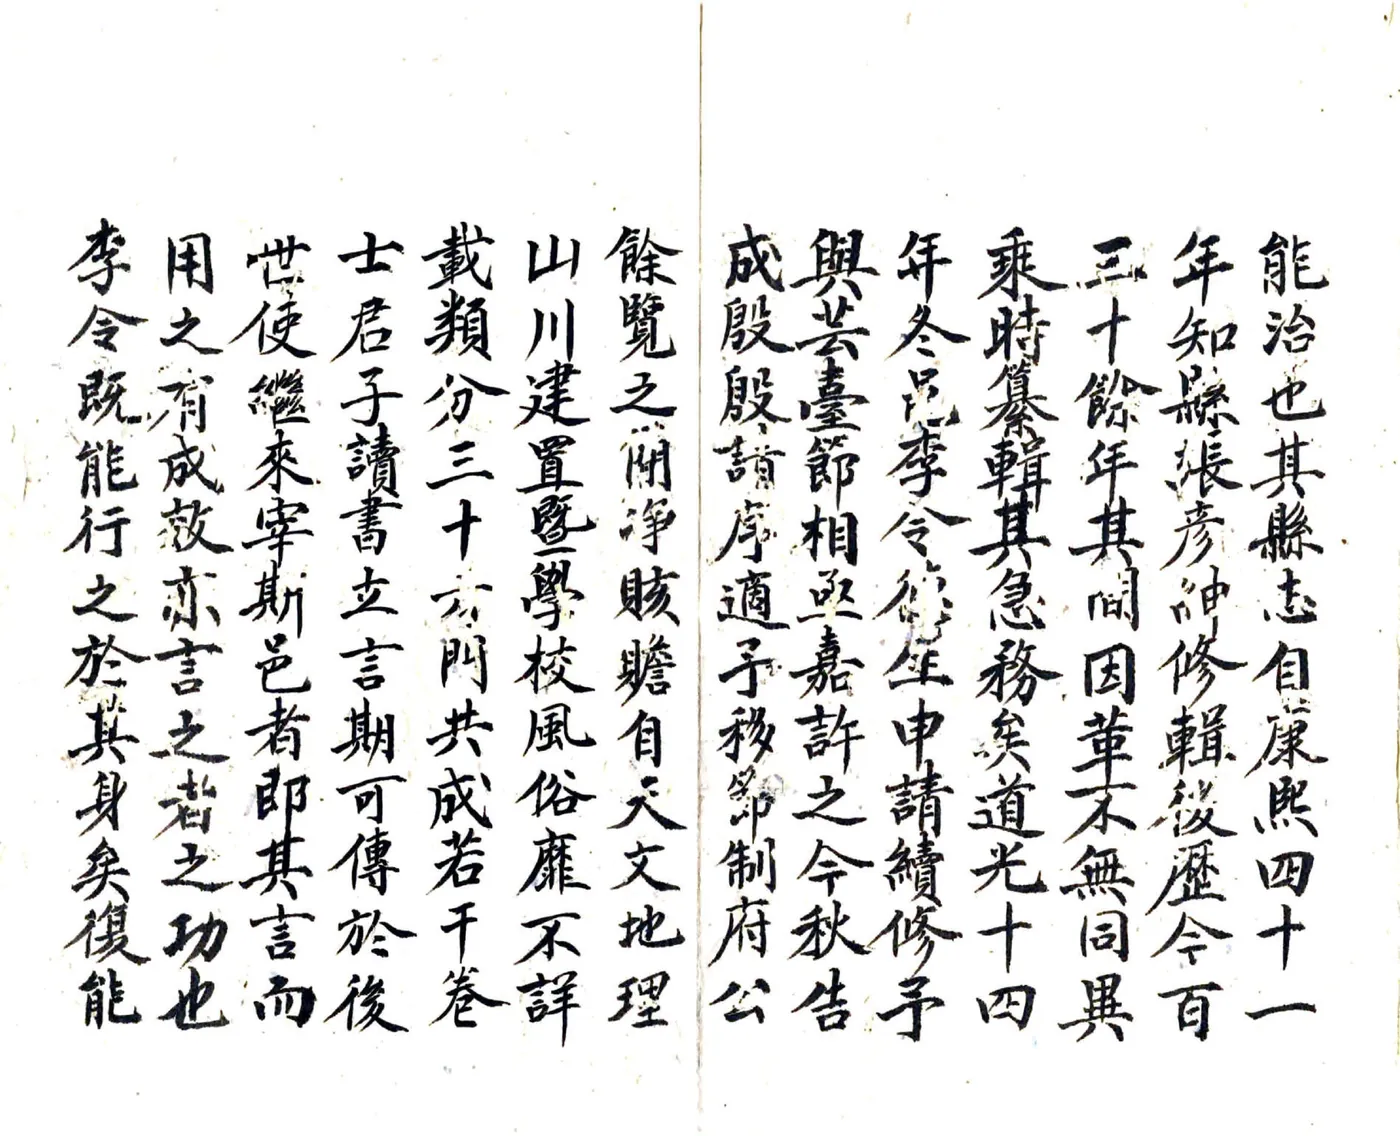 能治也其縣志自康熙四十一
年知縣張彥紳修輯後歷今百
三十餘年其間因革不無同異
乘時纂輯其急務矣道光十四
年冬邑李令衍生申請續修予
與芸臺節相亟嘉許之今秋告
成殷殷請序適予移節制府公
餘覽之簡淨賅贍自天文地理
山川建置暨學校風俗靡不詳
載類分三十六門共成若干卷
士君子讀書立言期可傳於後
世使繼來宰斯邑者即其言而
用之有成效亦言之者之功也
李令既能行之於其身矣復能